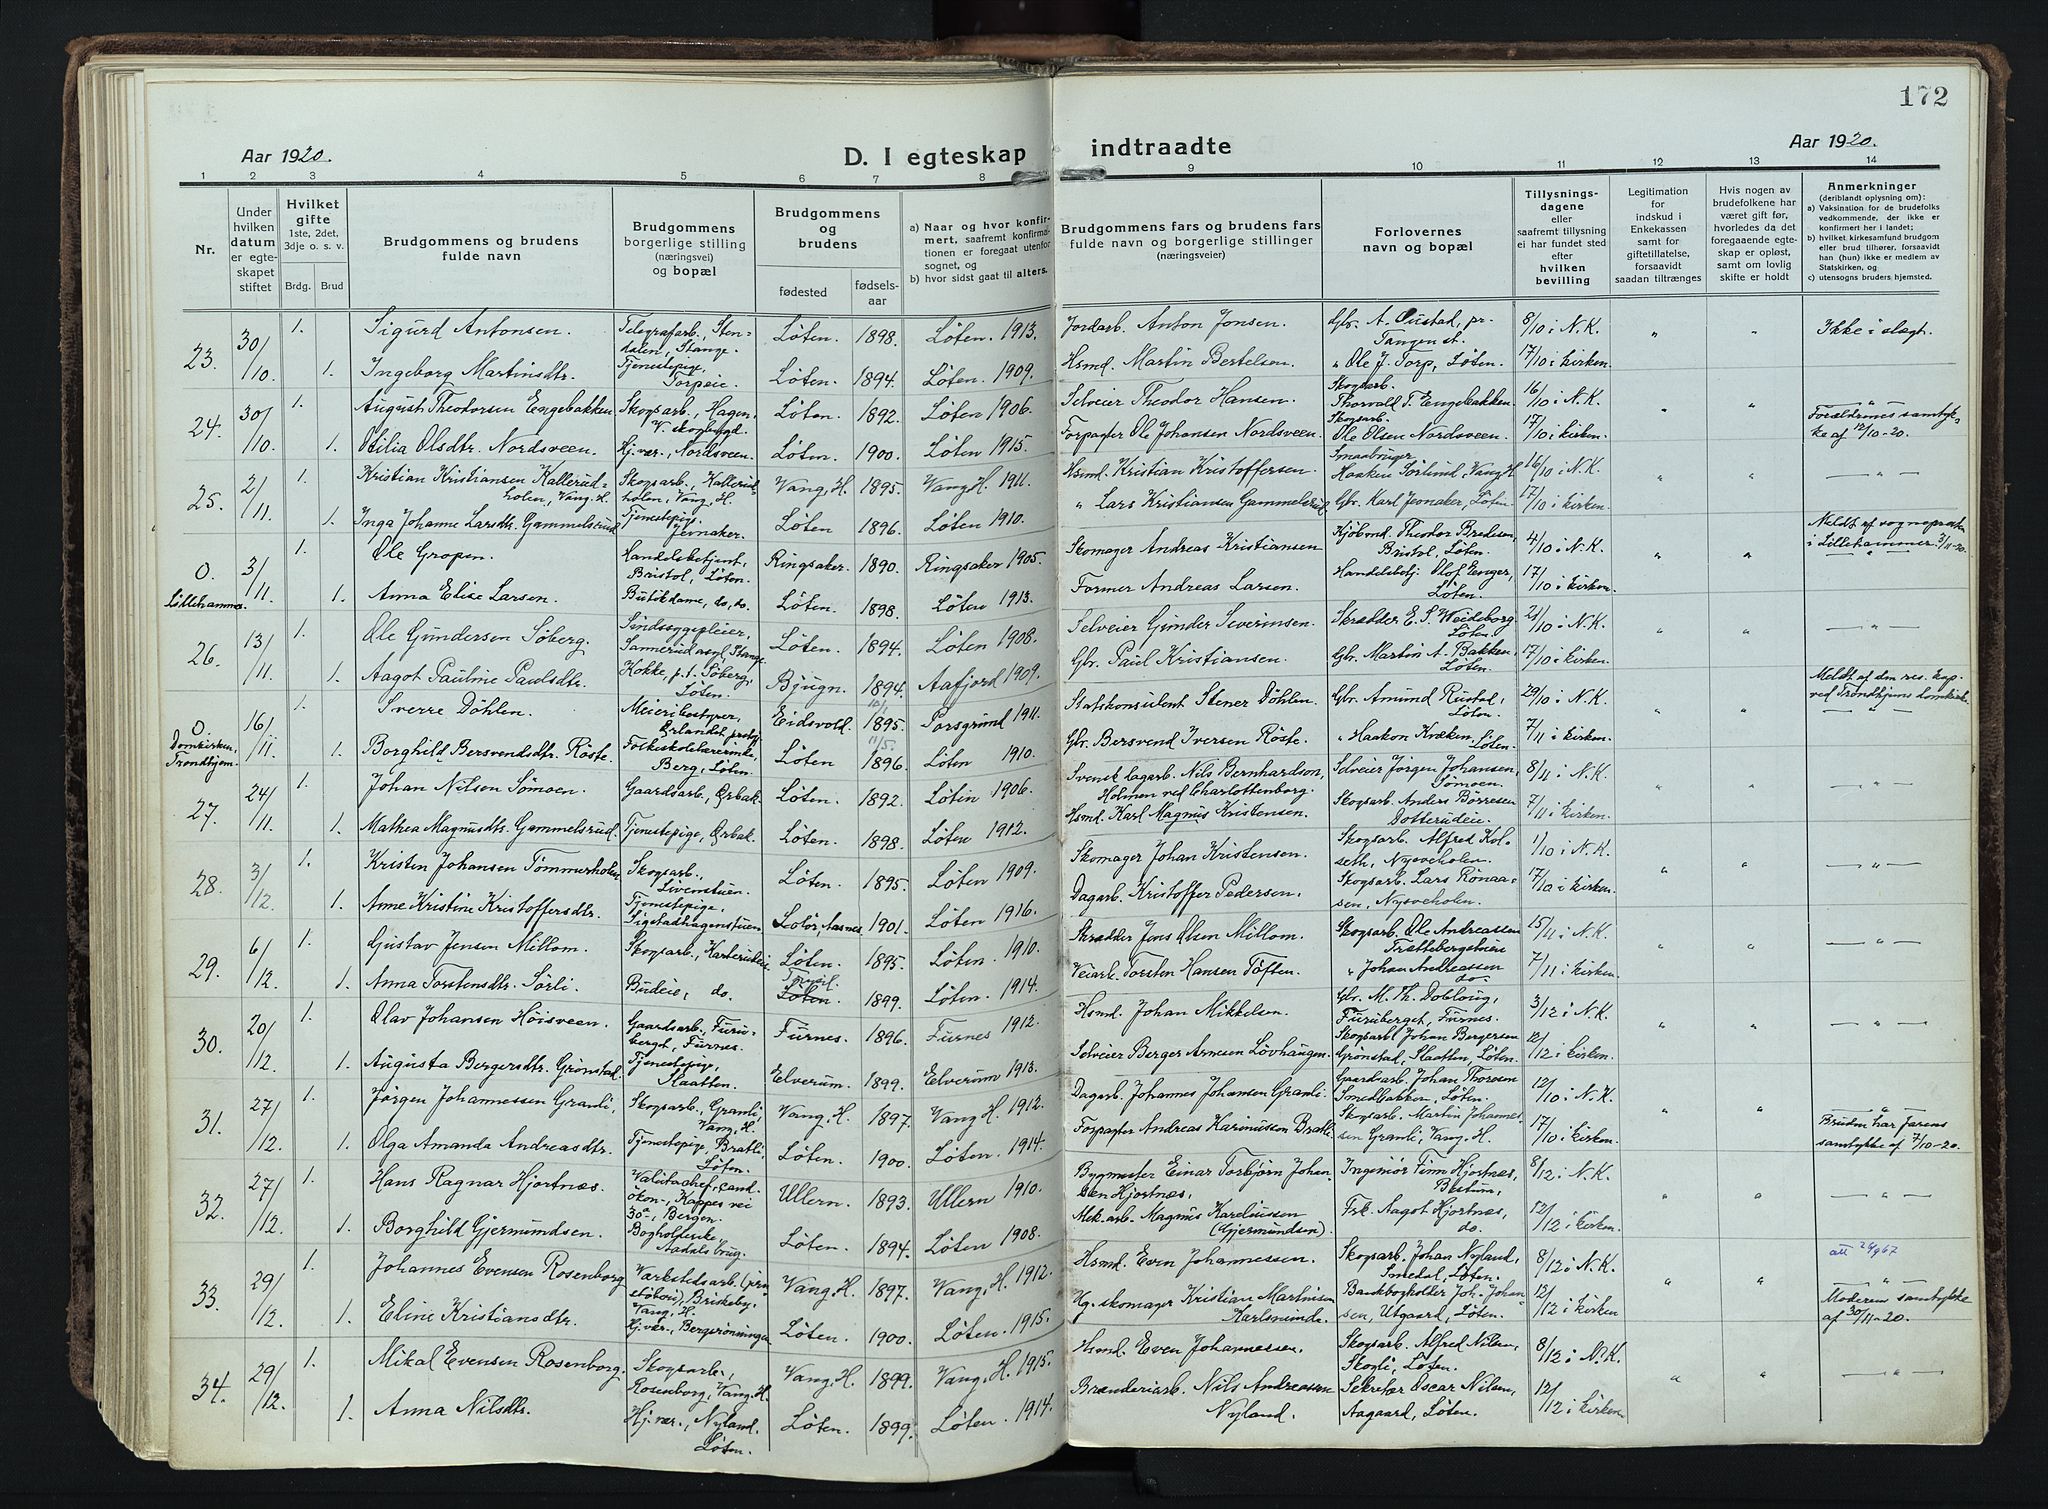 172
Aar 1920.
D. I egteskap indtraadte
Aar 1920.
1 2 3 4 5 6 7 8 9 10 11 12 13 14
Nr.
Under hvilken datum er egteskapet stiftet
Hvilket gifte 1ste, 2det, 3dje o. s. v.
Brdg. Brud
Brudgommens og brudens fulde navn
Brudgommens borgerlige stilling (næringsvei) og bopæl
Brudgommens og brudens
fødested
fødselsaar
a) Naar og hvor konfirmert, saafremt konfirmationen er foregaat utenfor sognet, og
b) hvor sidst gaat til alters.
Brudgommens fars og brudens fars fulde navn og borgerlige stillinger (næringsveier)
Forlovernes navn og bopæl
Tillysningsdagene eller saafremt tillysning ei har fundet sted efter hvilken bevilling
Legitimation for indskud i Enkekassen samt for giftetillatelse, forsaavidt saadan tiltrænges
Hvis nogen av brudefolkene har været gift før, hvorledes da det foregaaende egteskap er opløst, samt om lovlig skifte er holdt
Anmerkninger (deriblandt oplysning om):
a) Vaksination for de brudefolks vedkommende, der ikke er konfirmert her i landet;
b) hvilket kirkesamfund brudgom eller brud tilhører, forsaavidt han (hun) ikke er medlem av Statskirken, og
c) utensogns bruders hjemsted.
23. 30/10. 1. Sigurd Antonsen. Telegrafarb., Stendalen, Stange. Løten. 1898. Løten. 1913. Jordarb. Anton Jonsen. Gbr. A. Oustad, pr. Tangen st. 8/10 i N.K. " " Ikke i slegt.
1. Ingeborg Martinsdtr. Tjenestepige, Torpeie. Løten. 1894. Løten. 1909. Hsmd. Martin Bertelsen. " Ole J. Torp, Løten. 17/10 i kirken.
24. 30/10. 1. August Theodorsen Engebakken. Skogsarb., Hagen, V. skogbygd. Løten. 1892. Løten 1906. Selveier Theodor Hansen. Skogsarb. Thorvald T. Engebakken. 16/10 i N.K. " " — " —
1. Otilia Olsdtr. Nordsveen. Hj.vær., Nordsveen. Løten. 1900. Løten 1915. Forpagter Ole Johansen Nordsveen. Skogsarb. Ole Olsen Nordsveen. 17/10 i kirken. Forældrenes samtykke af 12/10-20.
25. 2/11. 1. Kristian Kristiansen Kallerudholen, Vang. H. Skogsarb., Kallerudholen, Vang, H. Vang, H. 1895. Vang H. 1911. Hsmd. Kristian Kristoffersen. Smaabruger Haaken Sørlund, Vang H. 16/10 i N.K. " " — " —
1. Inga Johanne Larsdtr. Gammelsrud. Tjenestepige, Jevnaker. Løten 1896. Løten 1910. " Lars Kristiansen Gammelsrud. Gbr. Karl Jevnaker, Løten. 17/10 i kirken.
0. Lillehammer. 3/11. 1. Ole Gropen. Handelsbetjent, Bristol, Løten. Ringsaker. 1890. Ringsaker 1905. Skomager Andreas Kristiansen Kjøbmd. Theodor Bredesen, Bristol, Løten. 4/10 i N.K. " " Meldt af sogneprest i Lillehammer 3/11-20.
1. Anna Elise Larsen. Butikdame, do, do. Løten. 1898. Løten 1913. Former Andreas Larsen. Handelsbetj. Olof Enger, Løten. 17/10 i kirken.
26. 13/11. 1. Ole Gundersen Søberg. Sindssygepleier, Sannerud asyl, Stange. Løten. 1894. Løten 1908. Selveier Gunder Severinsen. Skrædder E. S. Weideborg Løten. 21/10 i N.K. " " — " —
1. Aagot Pauline Paulsdtr. Kokke, p.t. Søberg, Løten. Bjugn. 1894. Aafjord 1909. Gbr. Paul Kristiansen. Gbr. Martin A. Bakken, Løten. 17/10 i kirken.
0. Domkirken, Trondhjem. 16/11. 1. Sverre Döhlen. Meieribestyrer, Ørlandet prstgj. Eidsvold. 1895. Porsgrund 1911. Statskonsulent Stener Döhlen. Gbr. Amund Rustad, Løten. 29/10 i N.K. " " Meldt af den res. kap. ved Trondhjems domkirke.
1. Borghild Bersvendsdtr. Røste. Folkeskolelærerinde, Berg, Løten. Løten 11/5. 1896. Løten 1910. Gbr. Bersvend Iversen Røste. " Haakon Kræken, Løten. 7/11 i kirken.
27. 24/11. 1. Johan Nilsen Sömoen. Gaardsarb., Ørbak. Løten. 1892. Løten 1906. Svensk dagarb. Nils Bernhardson, Holmen ved Charlottenborg. Selveier Jørgen Johansen, Sömoen. 8/11 i N.K. " " "
1. Mathea Magnusdtr. Gammelsrud. Tjenestepige, Ørbak. Løten. 1898. Løten 1912. Hsmd. Karl Magnus Kristensen. Skogsarb. Anders Börresen Dotterudeie. 7/11 i kirken.
28. 3/12. 1. Kristen Johansen Tömmerholen. Skogsarb., Livenstuen. Løten. 1895. Løten 1909. Skomager Johan Kristensen. Skogsarb. Alfred Kolseth, Nysveholen. 1/10 i N.K. " " — " —
1. Anne Kristine Kristoffersdtr. Tjenestepige, Sigstadhagenstuen. Solör, Aasnes. 1901. Løten 1916. Dagarb. Kristoffer Pedersen. Skogsarb. Lars Rönaasen, Nysveholen. 17/10 i kirken.
29. 6/12. 1. Gustav Jensen Millom. Skogsarb., Karterudeie. Løten. 1895. Løten 1910. Skrædder Jens Olsen Millom. Skogsarb. Ole Andreassen Trættebergseie 15/11 i N.K. " " — " —
1. Anna Torstensdtr. Sörli. Budeie, do. Løten. 1899. Løten. 1914. Veiarb. Torsten Hansen Töften. " Johan Andreassen do. 7/11 i kirken.
30. 20/12. 1. Olav Johansen Höisveen. Gaardsarb., Furuberget, Furnes. Furnes. 1896. Furnes 1912. Hsmd. Johan Mikkelsen. Gbr. M. Th. Dobloug, Furuberget, Furnes. 3/12 i N.K. " " — " —
1. Augusta Bergersdtr. Grønstad. Tjenestepige, Slaatten. Elverum. 1899. Elverum 1913. Selveier Berger Arnesen Lövhaugen. Skogsarb. Johan Bergersen Grønstad, Slaatten, Løten. 12/12 i kirken.
31. 27/12. 1. Jörgen Johannessen Granli, Skogsarb., Granli, Vang, H. Vang, H. 1897. Vang, H. 1912. Dagarb. Johannes Johansen Granli. Gaardsarb. Johan Thoresen Smedbakken, Løten. 12/10 i N.K. " " "
1. Olga Amanda Andreasdtr. Tjenestepige, Bratli, Løten. Løten. 1900. Løten. 1914. Forpagter Andreas Karinusen Bratli. Skogsarb. Martin Johannessen Granli, Vang, H. 17/10 i kirken. Bruden har farens samtykke af 7/10-20.
32. 27/12. 1. Hans Ragnar Hjortnæs. Valutachef, cand. ökon., Kappes vei 30a, Bergen. Ullern. 1893. Ullern 1910. Bygmester Einar Torbjørn Johansen Hjortnæs. Ingeniør Finn Hjortnæs, Bestum, 8/12 i N.K. " " — " —
1. Borghild Gjermundsen. Bogholderske, Aadals brug. Løten. 1894. Løten 1908. Mek.arb. Magnus Kareliussen (Gjermundsen). Frk. Aagot Hjortnæs, do. 12/12 i kirken.
33. 29/12. 1. Johannes Evensen Rosenborg. Værkstedsarb. (jernstöberi) Briskeby, Vang, H. Vang, H. 1897. Vang, H. 1912. Hsmd. Even Johannessen. Skogsarb. Johan Nyland, Smedal, Løten. 8/12 i N.K. " " att 26/9 67
1. Eline Kristiansdtr. Hj.vær., Bergsröningen. Løten. 1900. Løten. 1915. Hg. skomager Kristian Martinsen Karlsrunde. Bankbogholder Joh. Johansen, Utgaard, Løten. 12/12 i kirken. Moderens samtykke af 30/11-20.
34. 29/12. 1. Mikal Evensen Rosenborg. Skogsarb., Rosenborg, Vang, H. Vang, H. 1899. Vang, H. 1915. Hsmd. Even Johannessen. Skogsarb. Alfred Nilsen, Skogli, Løten. 8/12 i N.K. " " — " —
1. Anna Nilsdtr. Hj.vær., Nyland, Løten. Løten. 1899. Løten. 1914. Brænderiarb. Nils Andreassen Nyland. Sekretær Oscar Nilsen, Aagaard, Løten. 12/12 i kirken.